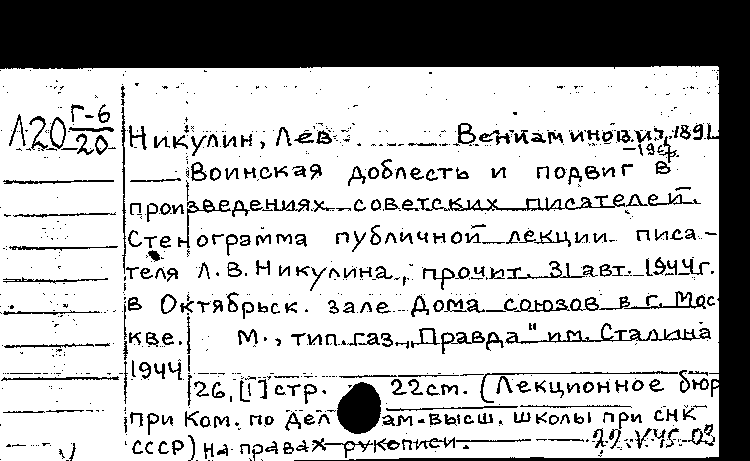 Л20 Г-6/20
Никулин, Лев Вениаминович, 1891
Воинская доблесть и подвиг в
произведениях советских писателей.
Стенограмма публичной лекции писа-
теля Л.В. Никулина, прочит. 31 авт. 1944 г.
в Октябрьск. зале Дома союзов в г. Мос
кве. М., тип. газ. „Правда" им. Сталина
1944
26, [1] стр. 22 см. (Лекционное бюр
при Ком. по дел ам. высш. школы при СНК
СССР) На правах рукописи. 22.V.45-03